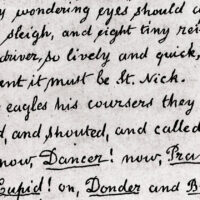 wondering eyes should
sleigh, and eight tiny rei
driver, so lively and quick,
ent it must be St. Nick.
eagles his coursers they
d, and shouted, and called
now, Dancer! now, Pra
Cupid! on, Donder and B